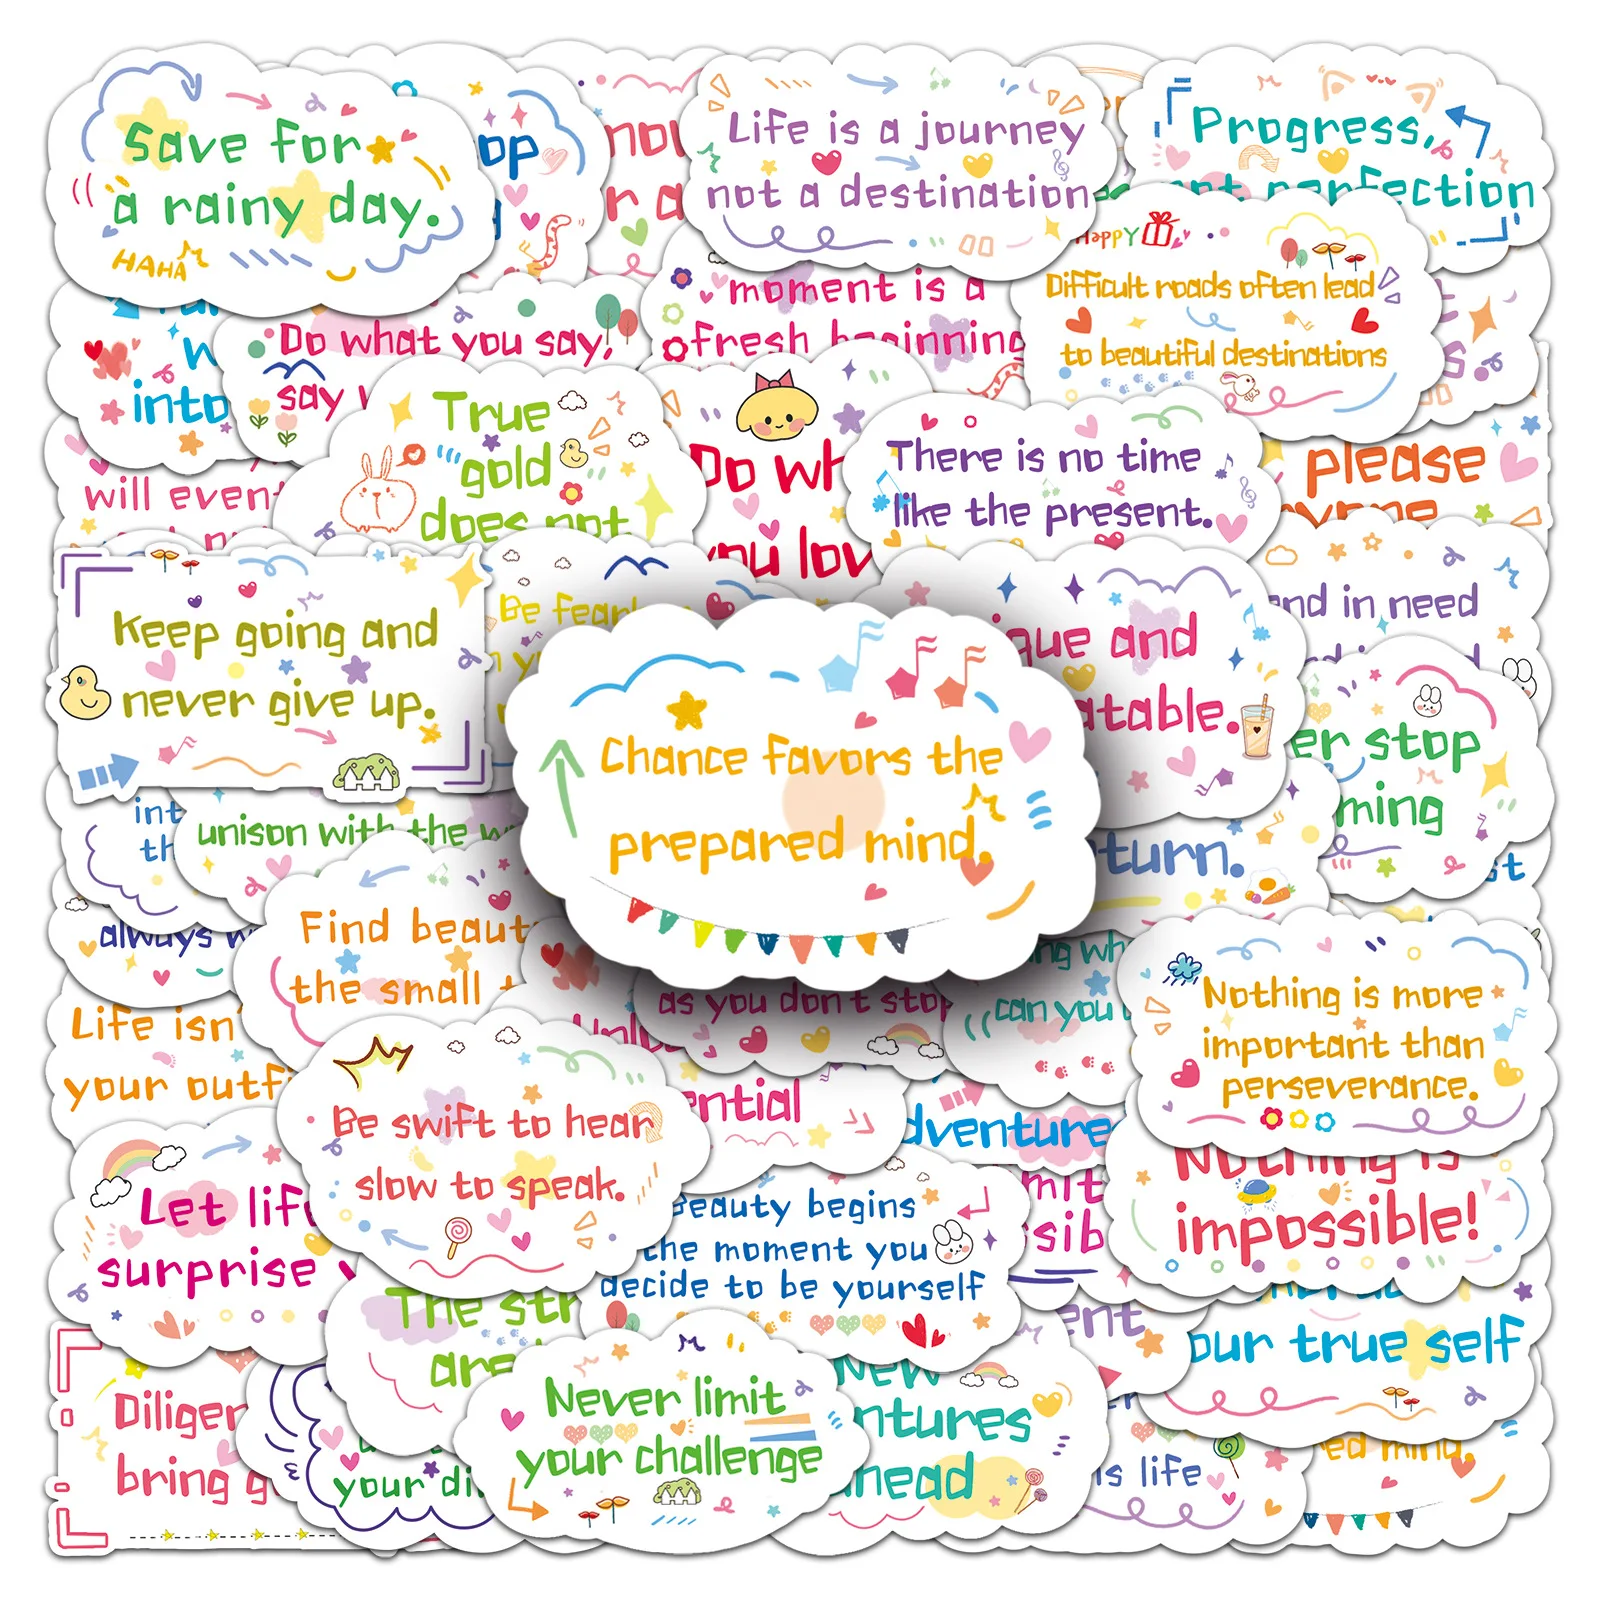 Save for
a rainy day.
HAHA
op
Life is a journey
not a destination
Progress,
not perfection
Happy
Difficult roads often lead
to beautiful destinations
moment is a
fresh beginning
Do what you say,
say
into
True
gold
does not
Do wh
you lov
There is no time
like the present.
please
will event
Keep going and
never give up.
Be fearl
que and
atable.
end in need
er stop
ming
Chance favors the
prepared mind.
int
th
unison with the w
turn.
always w
Find beaut
the small t
as you don't stop
ng wh
can you
Nothing is more
important than
perseverance.
Life isn'
your outfi
Be swift to hear
slow to speak.
ential
dventure
Nothing is
impossible!
mit
sib
Let life
surprise y
Beauty begins
the moment you
decide to be yourself
The str
are
ent
our true self
Diligen
bring g
your di
Never limit
your challenge
New
ntures
head
is life
ed mind.